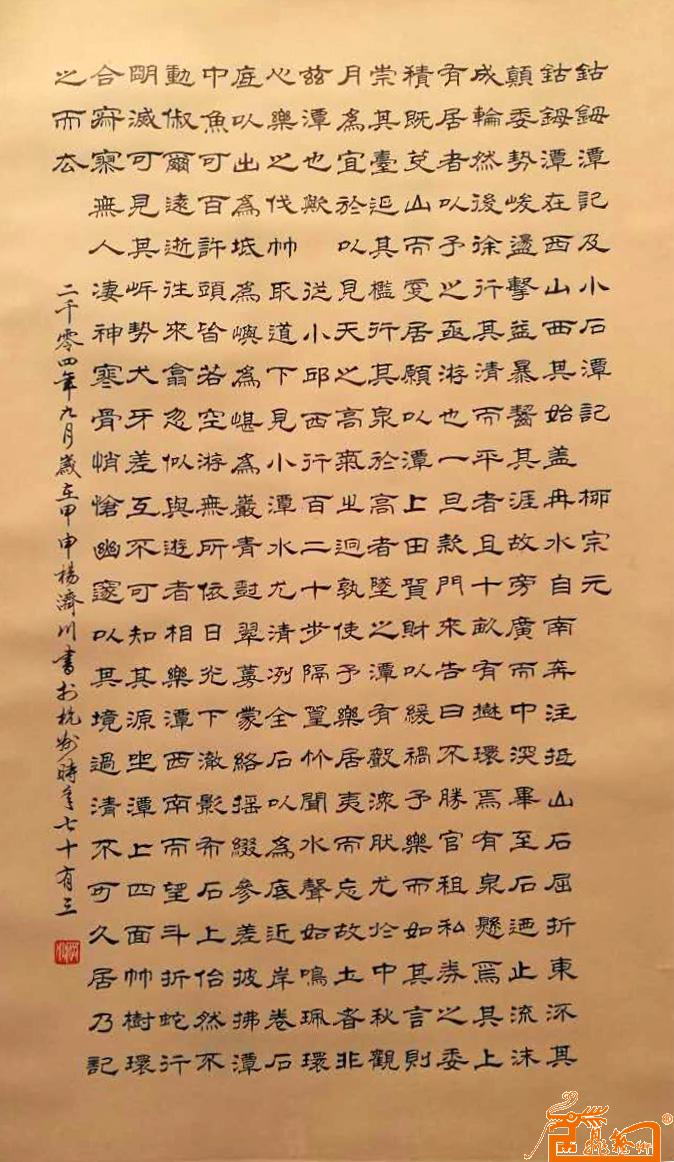 鈷鉧潭記及小石潭記 柳宗元
鈷鉧潭在西山西其始蓋冉水自南奔注抵山石屈折東流其
顛委勢峻盪擊益暴齧其涯故旁廣而中深畢至石迺止流沫
成輪然後徐行其清而平者且十畝有樹環焉有泉懸焉其上
有居者以予之亟游也一旦款門來告曰不勝官租私券之委
積既芟山而更居願以潭上田貿財以緩禍予樂而如其言則
崇其臺延其檻行其泉於高者墜之潭有聲潀然尤於中秋觀
月為宜於以見天之高氣之迥孰使予樂居夷而忘故土者非
茲潭也歟 從小邱西行百二十步隔篁竹聞水聲如鳴珮環
心樂之伐竹取道下見小潭水尤清冽全石以為底近岸卷石
底以出為坻為嶼為嵁為巖青樹翠蔓蒙絡搖綴參差披拂潭
中魚可百許頭皆若空游無所依日光下澈影布石上佁然不
動俶爾遠逝往來翕忽似與遊者相樂潭西南而望斗折蛇行
明滅可見其岸勢犬牙差互不可知其源坐潭上四面竹樹環
合寂寥無人淒神寒骨悄愴幽邃以其境過清不可久居乃記
之而去
二千零四年九月歲在甲申楊濟川書於杭州時年七十有三